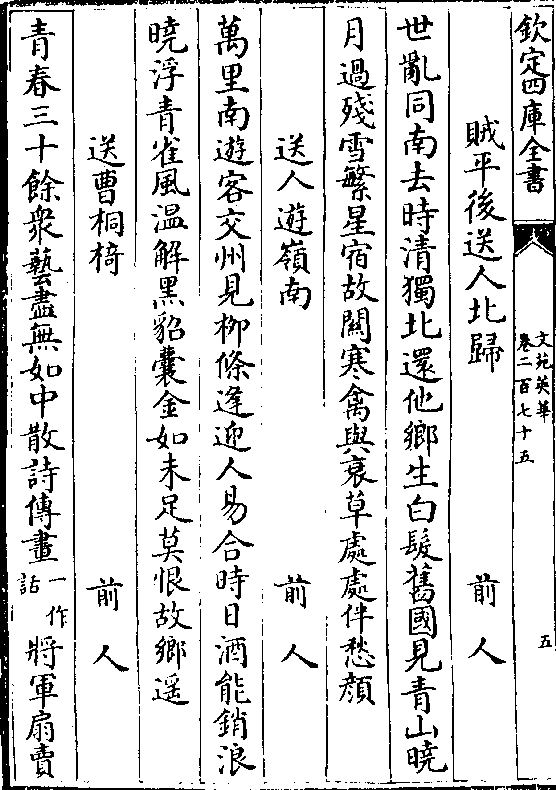 欽定四庫全書
文苑英華
卷二百七十五
五
賊平後送人北歸　前人
世亂同南去時清獨北還他鄉生白髮舊國見青山曉
月過殘雪繁星宿故關寒禽與衰草處處伴愁顔
送人遊嶺南　前人
萬里南遊客交州見柳條逢迎人易合時日酒能銷浪
曉浮青雀風温解黑貂囊金如未足莫恨故鄉遥
送曹桐椅　前人
青春三十餘衆藝盡無如中散詩傳畫一作話將軍扇賣